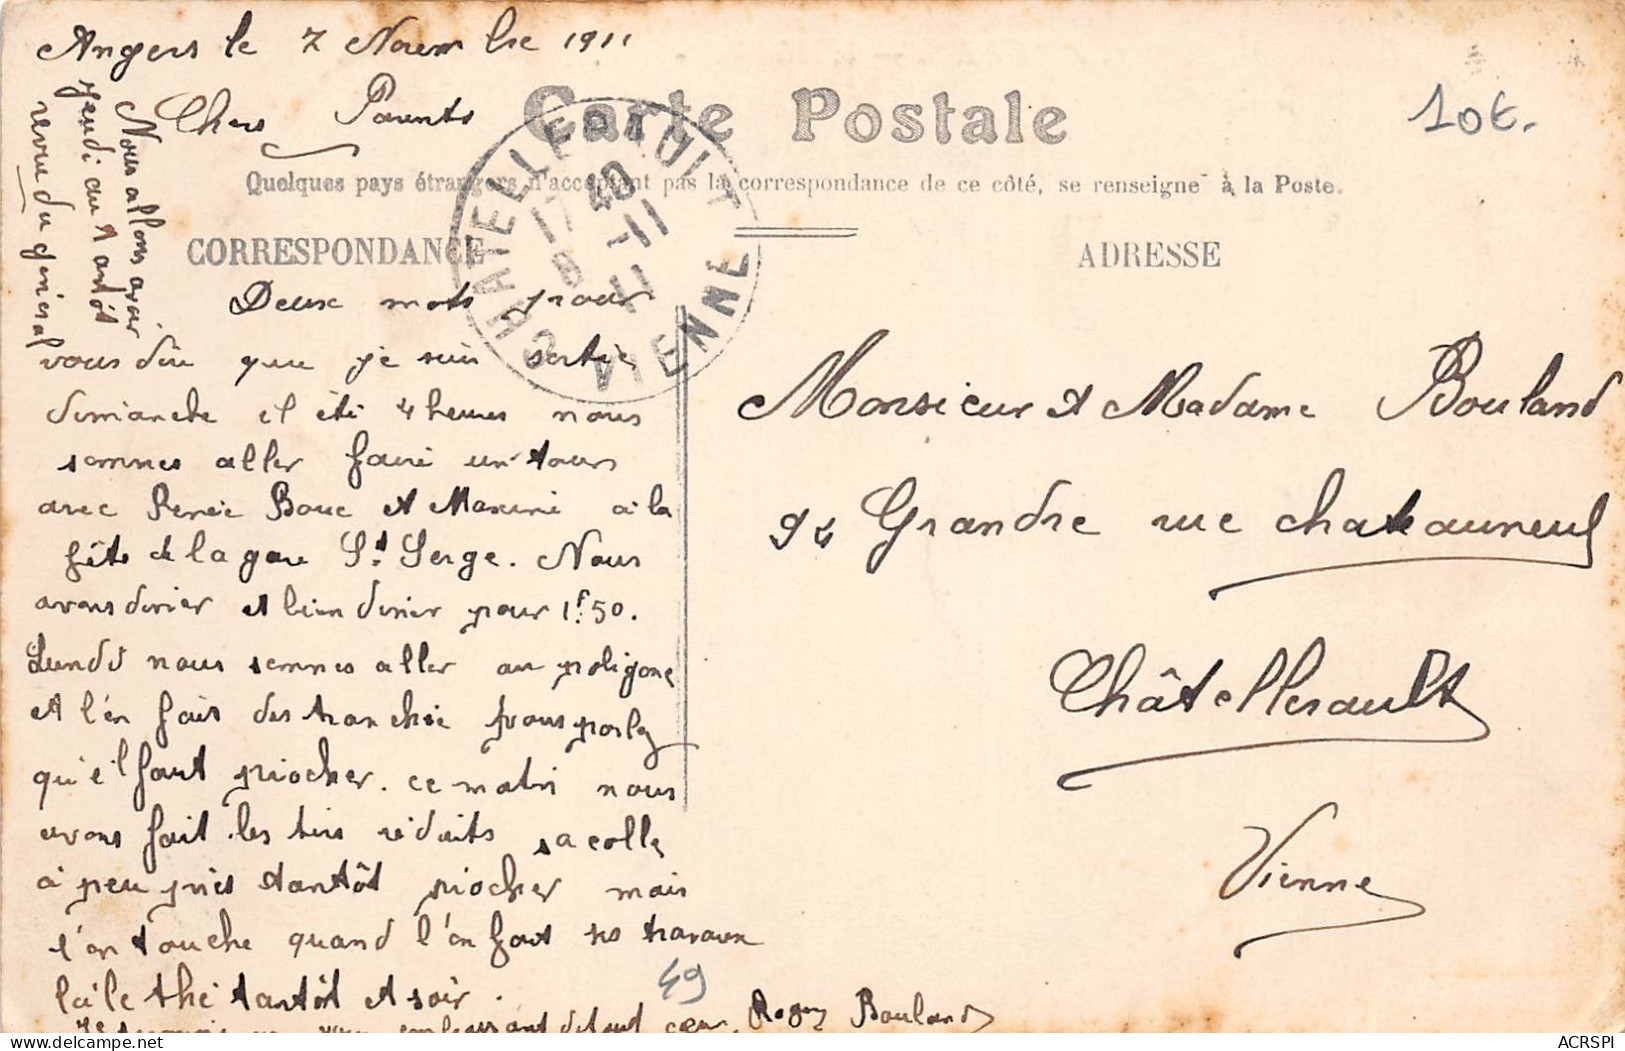 Angers le 7 Novembre 1911
Chers Parents
Carte Postale
10€.
Quelques pays étrangers n'acceptant pas la correspondance de ce côté, se renseigner à la Poste.
CORRESPONDANCE
ADRESSE
CHATELLERAULT
17 40
8 -11
11
VIENNE
Nous allons avoir
jeudi au tantôt
revue du général
Deux mots pour
vous dire que je suis sortie
dimanche il été 4 heures nous
sommes aller faire un tours
avec Renée Bouc et Maxime à la
fête de la gare St Serge. Nous
avons dinier et bien dinier pour 1f50.
Lundi nous sommes aller au poligone
et l'on fait des tranchée vous parlez
qu'él faut piocher. ce matin nous
avons fait les tirs réduits sa colle
à peu près tantôt piocher mais
l'on touche quand l'on fait ses travaux
là le thé tantôt et soir.
Je en vous embrassant de tout cœur. Roger Bouland
49
Monsieur et Madame Bouland
94 Grandre rue chateauneuf
Châtellerault
Vienne
ACRSPI